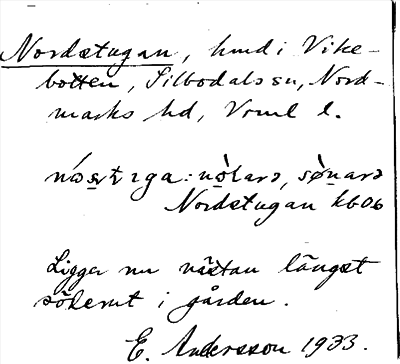 Nordstugan, hmd i Vike-
botten, Silbodals sn, Nord-
marks hd, Vrml l.
Nordstugan kbob
Ligga nu nästan längst
söderut i gården.
E. Andersson 1933.